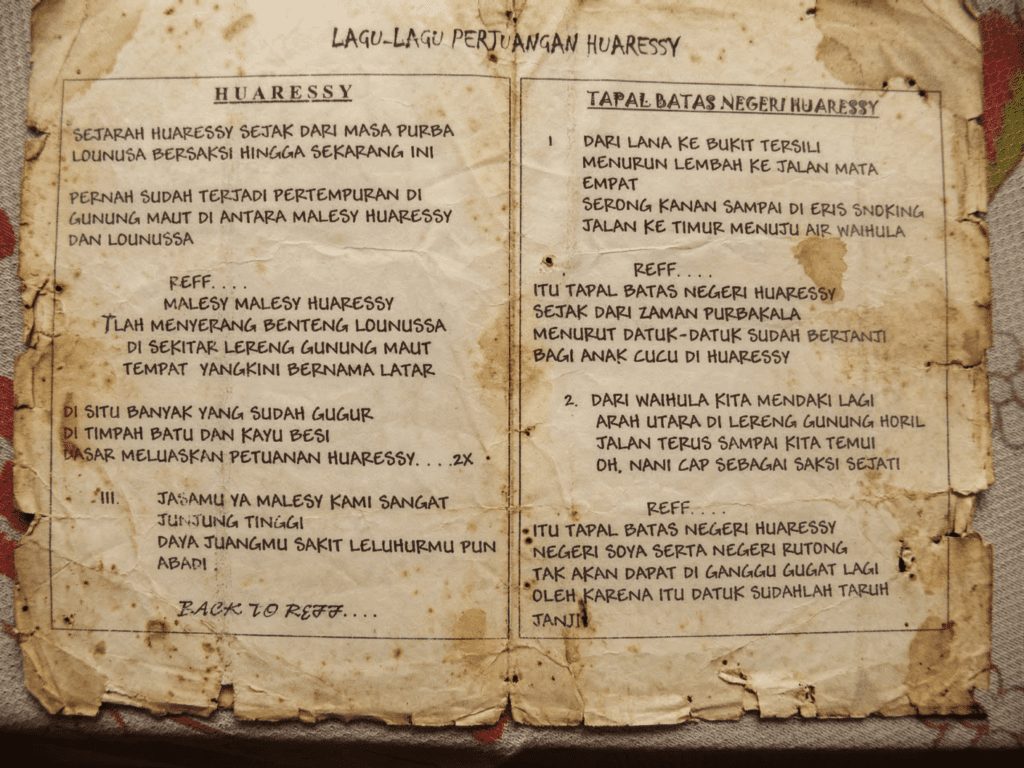 LAGU-LAGU PERJUANGAN HUARESSY
HUARESSY
SEJARAH HUARESSY SEJAK DARI MASA PURBA
LOUNUSA BERSAKSI HINGGA SEKARANG INI
PERNAH SUDAH TERJADI PERTEMPURAN DI
GUNUNG MAUT DI ANTARA MALESY HUARESSY
DAN LOUNUSSA
REFF....
MALESY MALESY HUARESSY
TLAH MENYERANG BENTENG LOUNUSSA
DI SEKITAR LERENG GUNUNG MAUT
TEMPAT YANGKINI BERNAMA LATAR
DI SITU BANYAK YANG SUDAH GUGUR
DI TIMPAH BATU DAN KAYU BESI
DASAR MELUASKAN PETUANAN HUARESSY....2X
III. JASAMU YA MALESY KAMI SANGAT
JUNJUNG TINGGI
DAYA JUANGMU SAKIT LELUHURMU PUN
ABADI
BACK TO REFF....
TAPAL BATAS NEGERI HUARESSY
1 DARI LANA KE BUKIT TERSILI
MENURUN LEMBAH KE JALAN MATA
EMPAT
SERONG KANAN SAMPAI DI ERIS SNOKING
JALAN KE TIMUR MENUJU AIR WAIHULA
REFF....
ITU TAPAL BATAS NEGERI HUARESSY
SEJAK DARI ZAMAN PURBAKALA
MENURUT DATUK-DATUK SUDAH BERJANJI
BAGI ANAK CUCU DI HUARESSY
2. DARI WAIHULA KITA MENDAKI LAGI
ARAH UTARA DI LERENG GUNUNG HORIL
JALAN TERUS SAMPAI KITA TEMUI
OH, NANI CAP SEBAGAI SAKSI SEJATI
REFF....
ITU TAPAL BATAS NEGERI HUARESSY
NEGERI SOYA SERTA NEGERI RUTONG
TAK AKAN DAPAT DI GANGGU GUGAT LAGI
OLEH KARENA ITU DATUK SUDAHLAH TARUH
JANJI